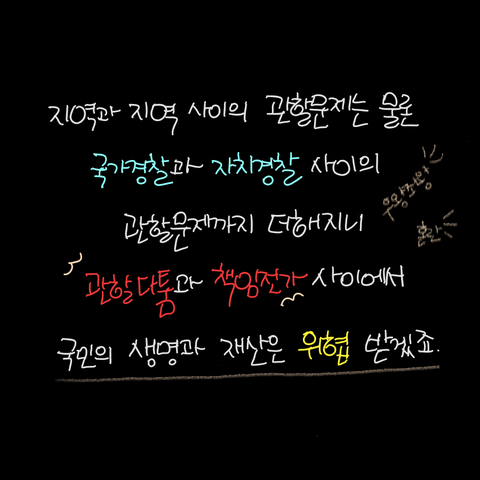 지역과 지역 사이의 관할문제는 물론
국가경찰과 자치경찰 사이의
우왕좌왕
관할문제까지 더해지니
혼란
관할다툼과 책임전가 사이에서
국민의 생명과 재산은 위협 받겠죠.